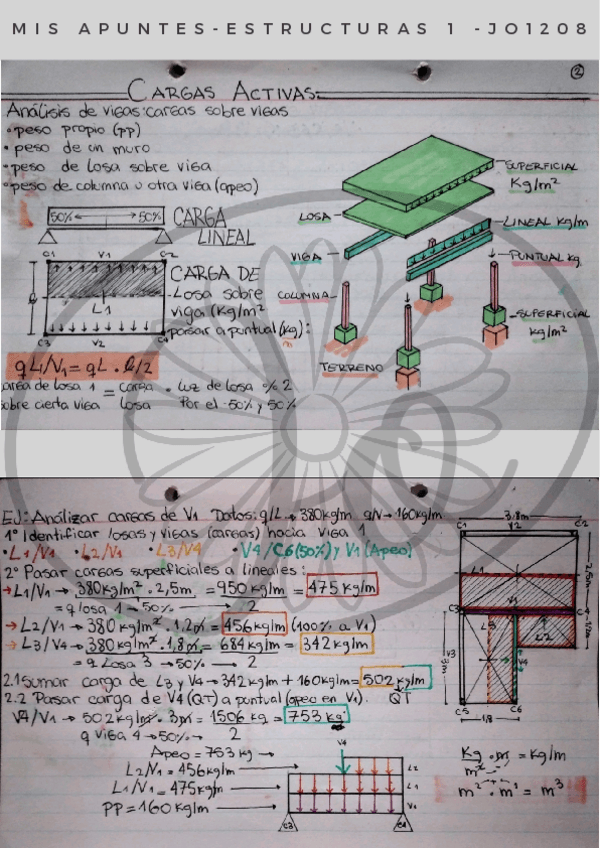 MIS APUNTES-ESTRUCTURAS 1 -JO1208
2
CARGAS ACTIVAS:
Análisis de vigas: cargas sobre vigas
• peso propio (pp)
• peso de un muro
• peso de losa sobre viga
• peso de columna u otra viga (apeo)
50% 50%
CARGA
LINEAL
C1 V1 C2
L1
C3 V2 C4
CARGA DE
Losa sobre
viga (Kg/m²
pasar a puntual (kg):
qL1/V1 = qL . l/2
carga de losa 1 = carga • luz de losa % 2
sobre cierta viga losa Por el 50% y 50%
SUPERFICIAL
Kg/m²
LOSA
LINEAL kg/m
VIGA
PUNTUAL kg
COLUMNA
SUPERFICIAL
kg/m²
TERRENO
EJ: Análizar cargas de V1 Datos: q/L → 380kg/m q/V → 160kg/m
1° Identificar losas y vigas (cargas) hacia viga 1
• L1/V1 • L2/V1 • L3/V4 • V4/C6(50%) y V1 (Apeo)
2° Pasar cargas superficiales a lineales:
→ L1/V1 → 380kg/m² . 2,5m = 950kg/m = 475 kg/m
= q losa 1 → 50% → 2
→ L2/V1 → 380 kg/m² . 1,2m = 456 kg/m (100% a V1)
→ L3/V4 → 380 kg/m² . 1,8m = 684 kg/m = 342 kg/m
= q Losa 3 → 50% → 2
2.1 Sumar carga de L3 y V4 → 342kg/m + 160kg/m = 502 kg/m
2.2 Pasar carga de V4 (QT) a puntual (apeo en V1). QT
V4/V1 → 502kg/m . 3m = 1506 kg = 753 kg
q viga 4 → 50% → 2
Apeo = 753 kg →
L2/V1 = 456kg/m →
L1/V1 = 475kg/m →
PP = 160 kg/m →
V4
L2
L1
C3 C4
3,8m
C1 V2 C2
L1
2,5m
C3 V1 C4
L3 L2
V3 V4
C5 C6
1,8
Kg . m = Kg/m
m²
m² . m¹ = m³